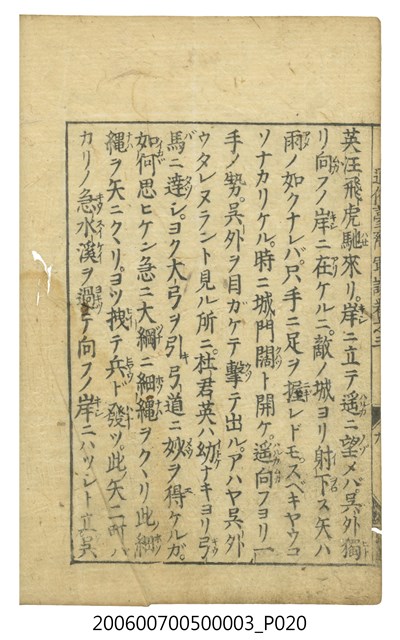 英汪飛虎馳來リ。岸ニ立テ遥ニ望メバ。呉外獨
リ向フノ岸ニ在ケルニ。敵ノ城ヨリ射下ス矢ハ
雨ノ如クナレバ。只手ニ足ヲ握レドモ。スベキヤウコ
ソナカリケル。時ニ城門闊ト開ケ。遥向フヨリ一
手ノ勢。呉外ヲ目ガケテ擊テ出ル。アハヤ呉外
ウタレヌラント見ル所ニ。杜君英ハ幼ナキヨリ弓
馬ニ達シ。ヨク大弓ヲ引キ。弓道ニ妙ヲ得ケルガ。
如何思ヒケン急ニ大綱ニ細縄ヲクヽリ此細
縄ヲ矢ニクヽリ。ヨツ拽テ兵ド發ツ。此矢二町ハ
カリノ急水溪ヲ過テ向フノ岸ニハツシト立呉
200600700500003_P020